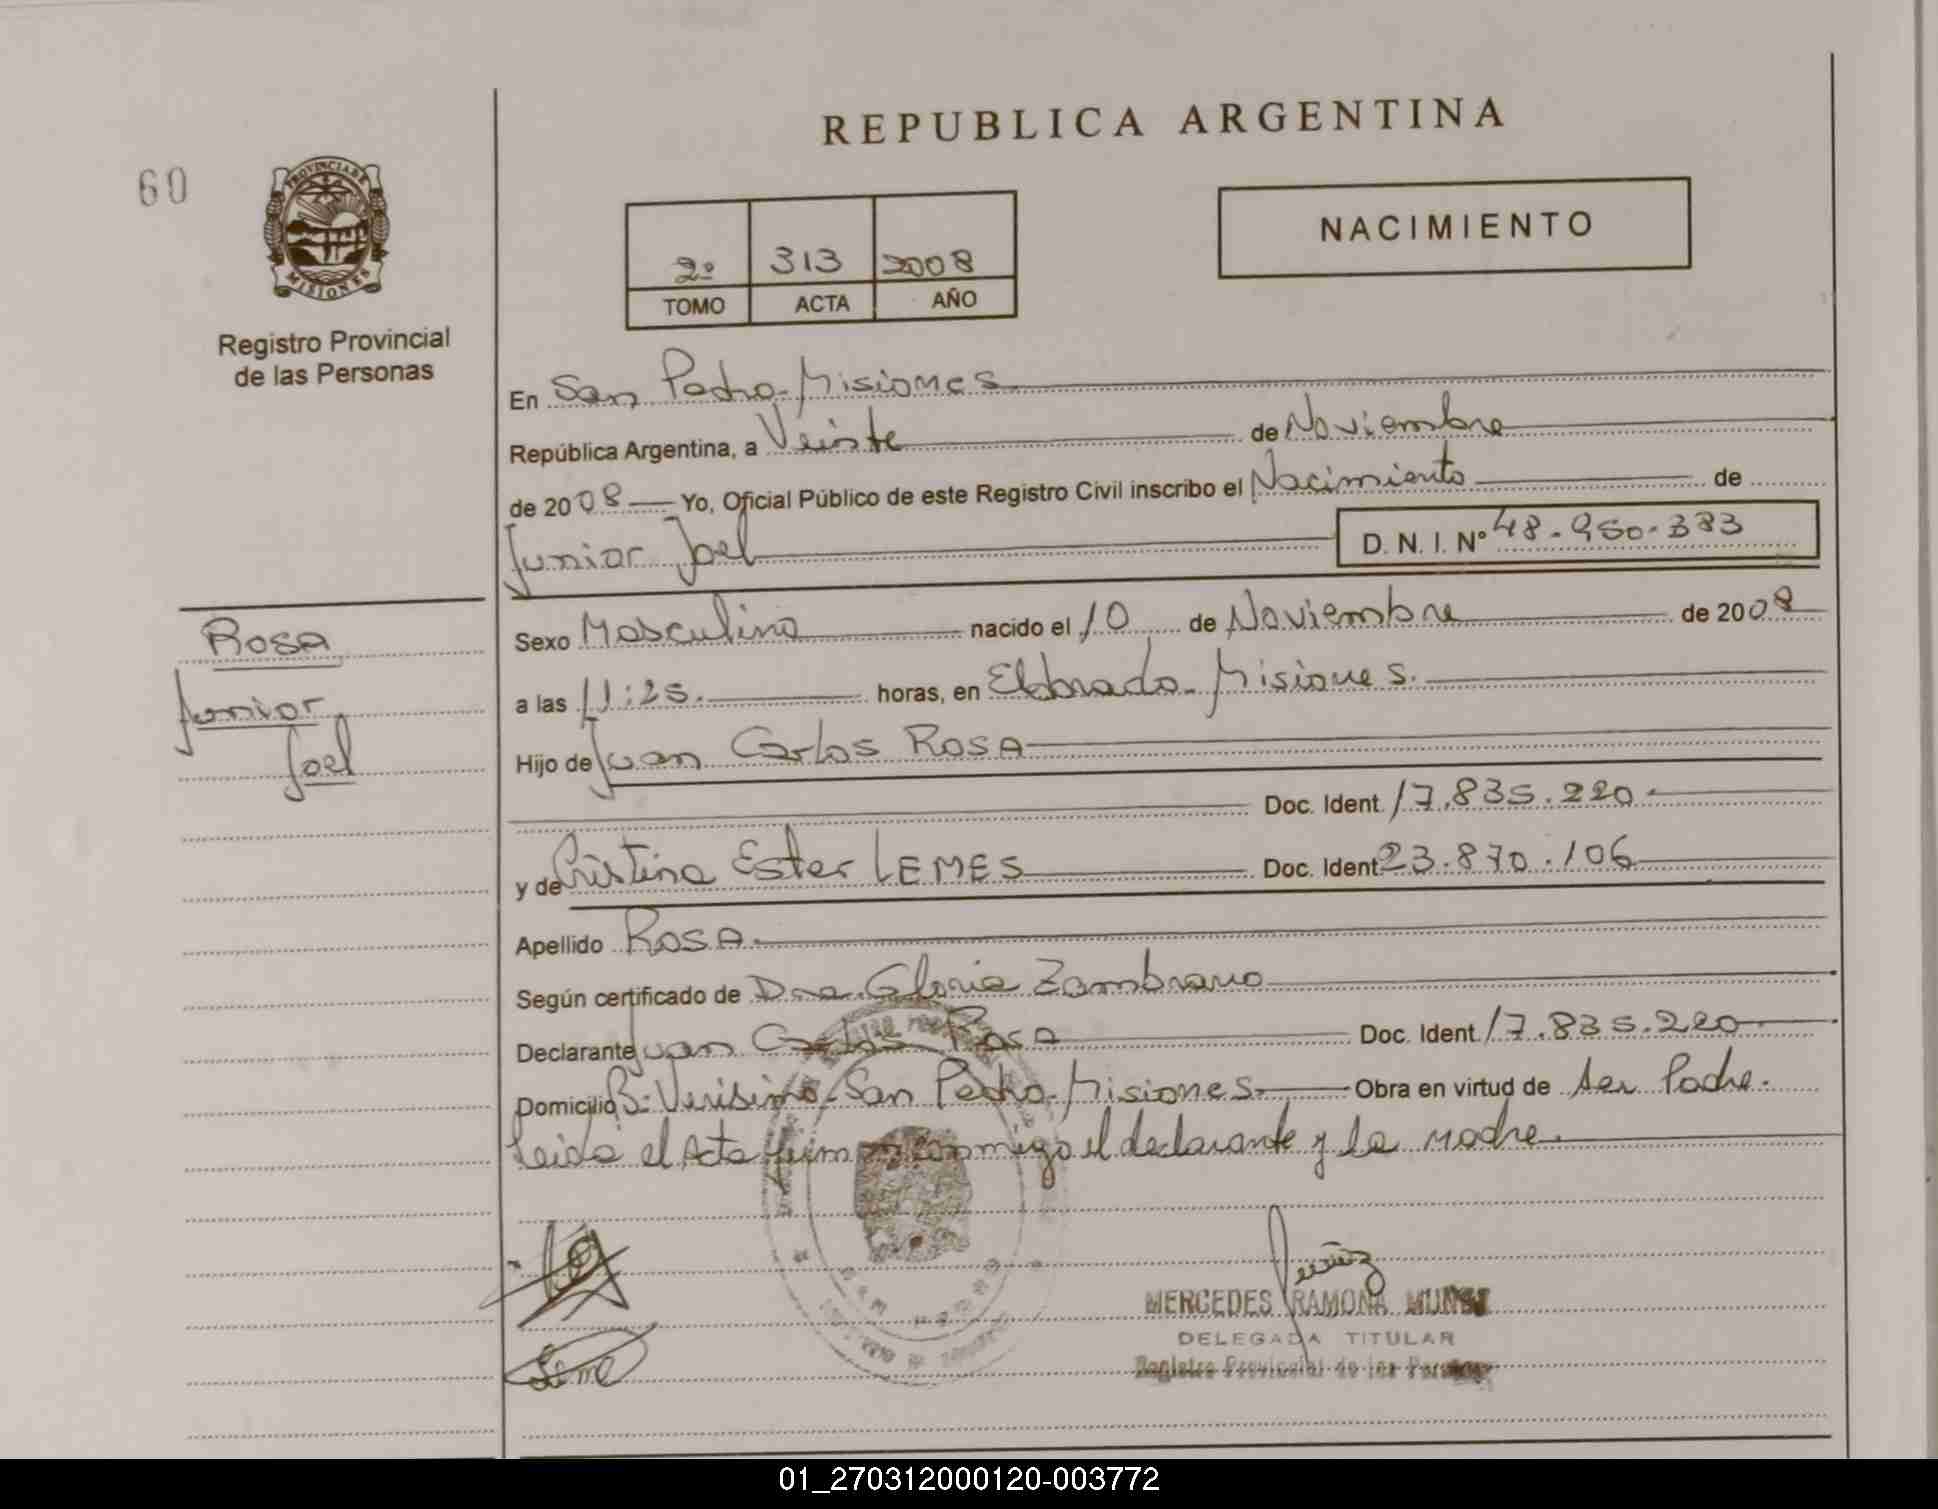 REPUBLICA ARGENTINA
60
PROVINCIA DE
MISIONES
Registro Provincial
de las Personas
NACIMIENTO
2º 313 2008
TOMO ACTA AÑO
En San Pedro-Misiones
República Argentina, a Veinte de Noviembre
de 2008 Yo, Oficial Público de este Registro Civil inscribo el Nacimiento de
Junior Joel D. N. I. Nº 48-950-383
Rosa
Junior
Joel
Sexo Masculino nacido el 10 de Noviembre de 2008
a las 11:25. horas, en Eldorado-Misiones.
Hijo de Juan Carlos ROSA
Doc. Ident. 17.835.220-
y de Cristina Ester LEMES Doc. Ident. 23.870.106
Apellido ROSA.
Según certificado de Dra. Gloria Zambrano
Declarante Juan Carlos Rosa Doc. Ident. 17.835.220
Domicilio B: Verisimo-San Pedro-Misiones- Obra en virtud de ser Padre.
Leida el Acta firman conmigo el declarante y la madre.
MERCEDES RAMONA
DELEGADA TITULAR
Registro Provincial de las Personas
01_270312000120-003772